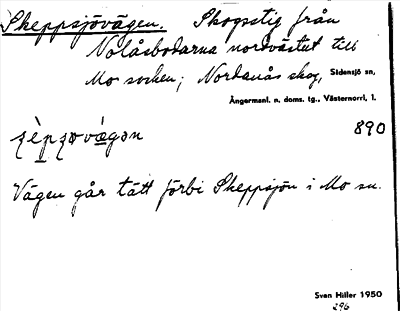 Skeppsjövägen. Skogsstig från
Nolåsbodarna nordvästut till
Mo socken; Nordanås skog, Sidensjö sn,
Ångermanl. n. doms. tg., Västernorrl. l.
890
Vägen går tätt förbi Skeppsjön i Mo sn.
Sven Hiller 1950
296